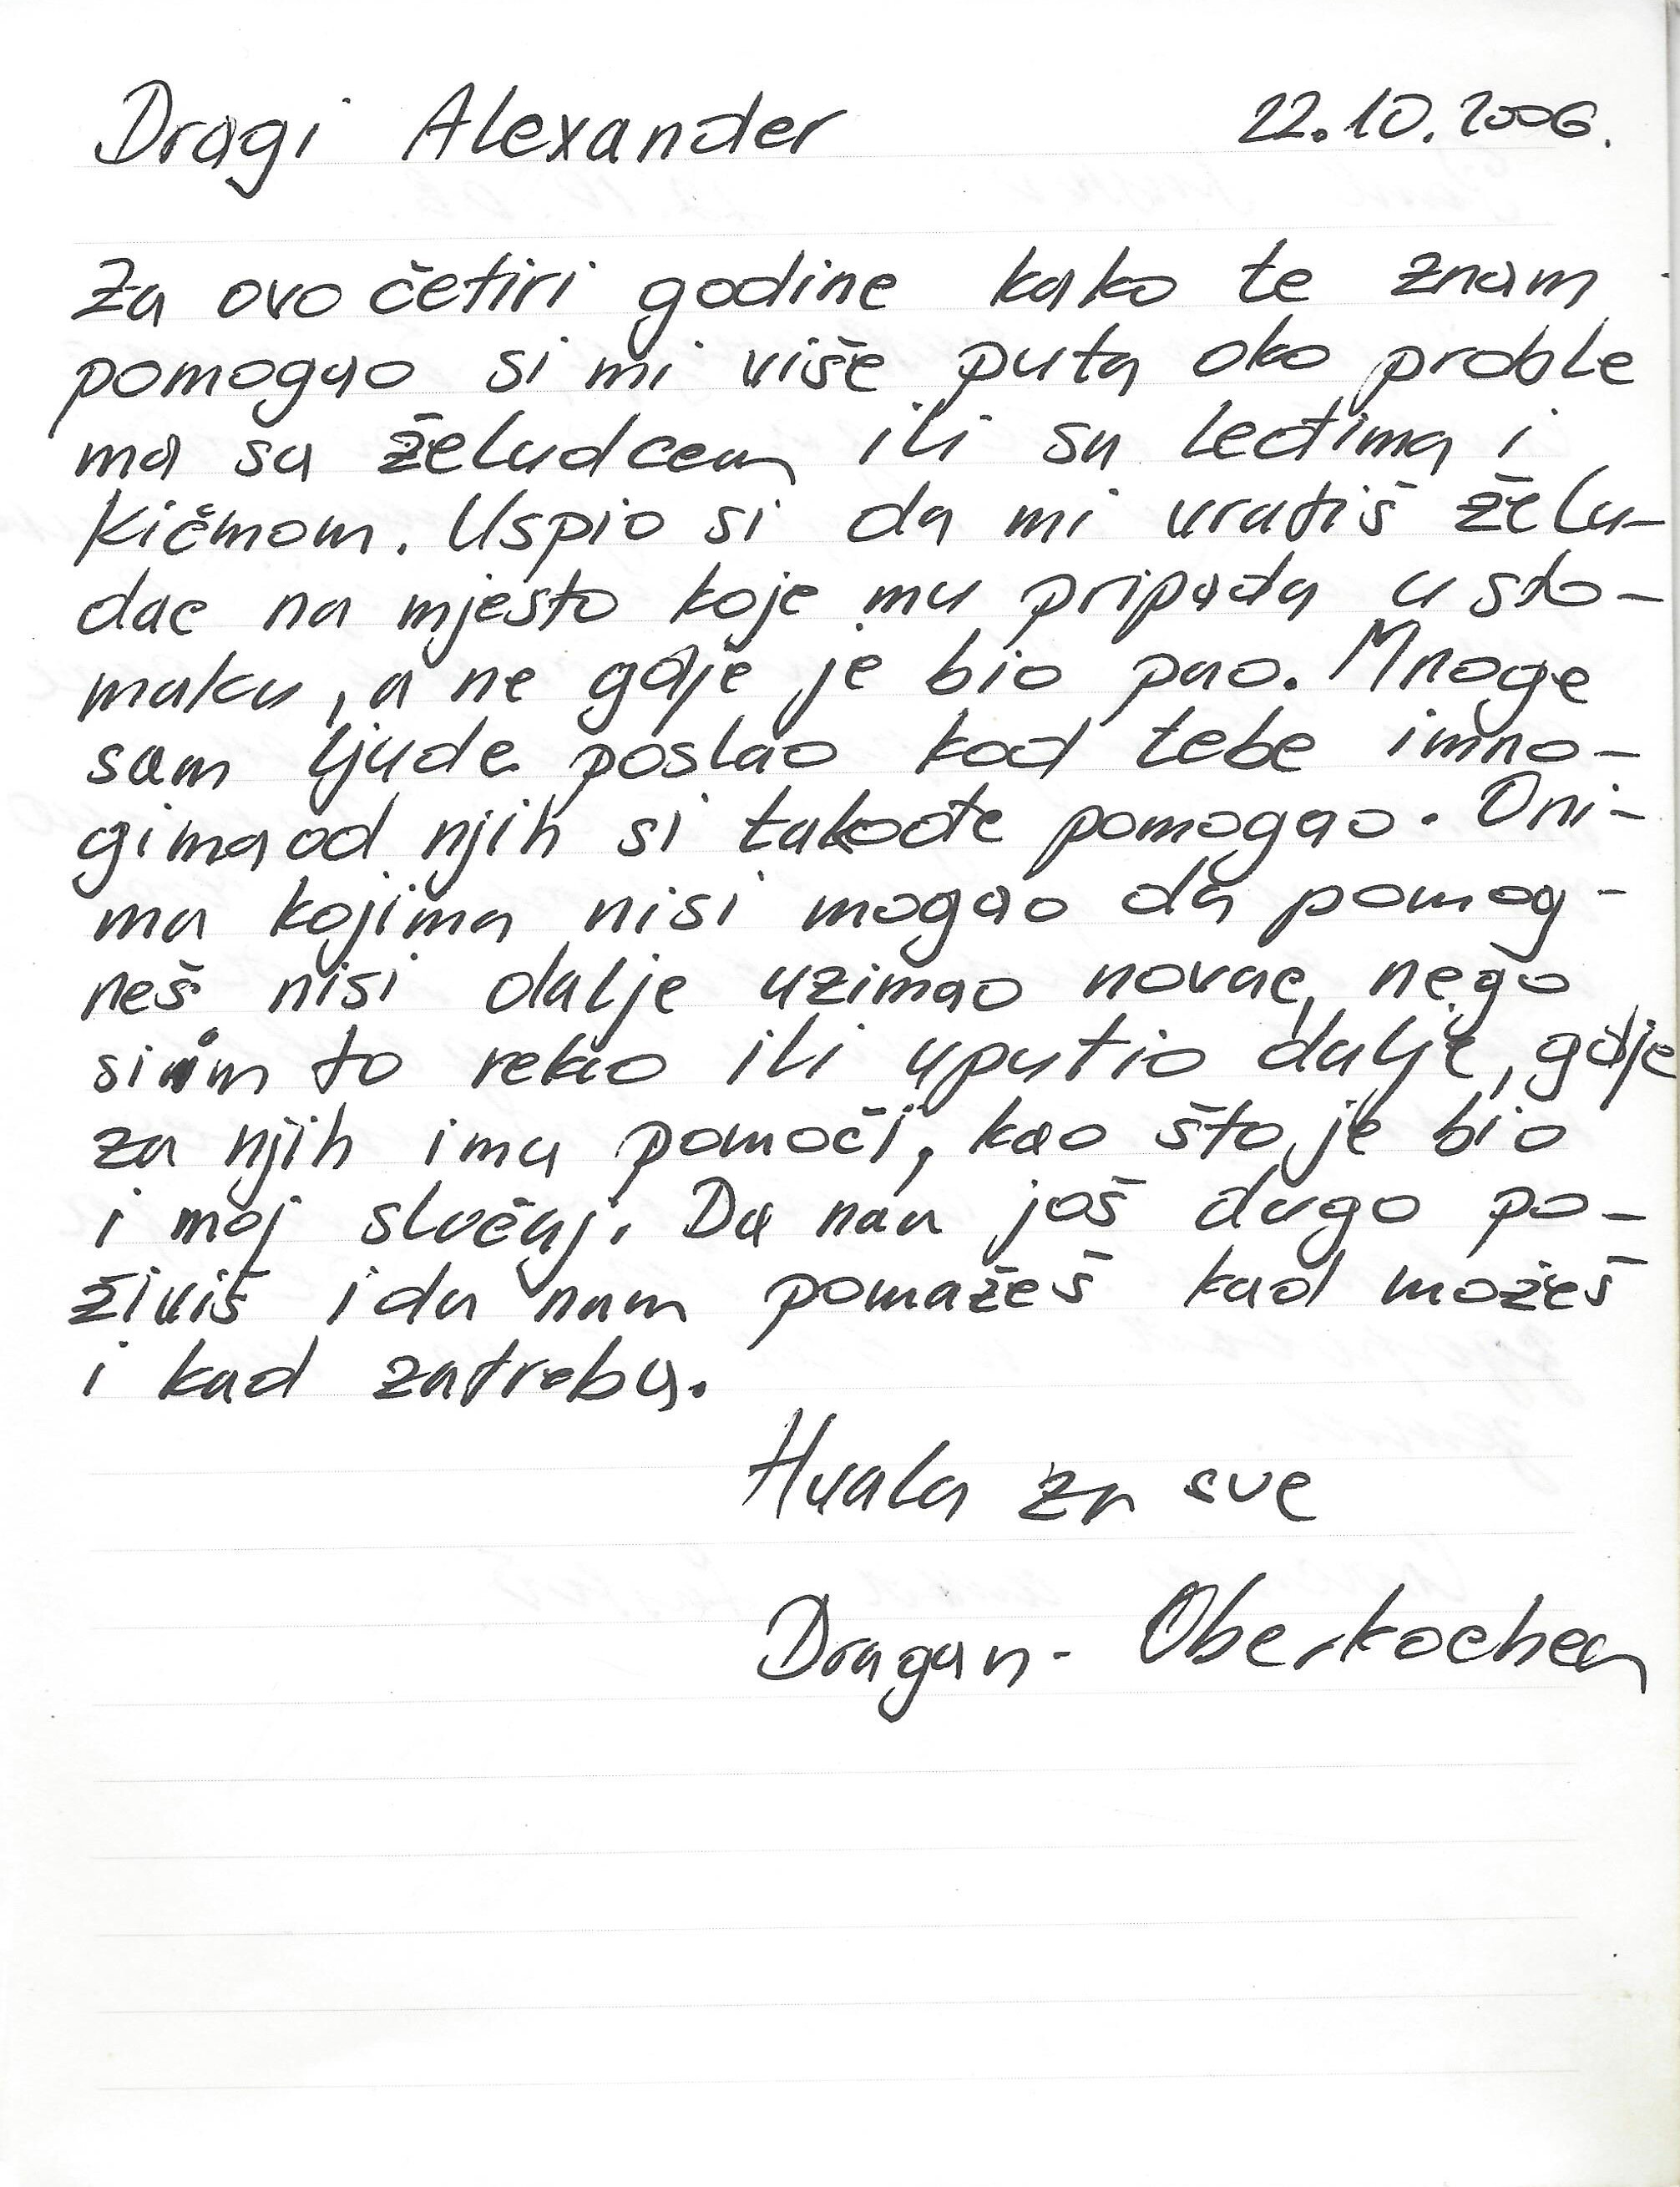 Dragi Alexander 22.10.2006.
Za ovo četiri godine kako te znam
pomogao si mi više puta oko proble
ma sa želudcem ili sa leđima i
kičmom. Uspio si da mi vratiš želu-
dac na mjesto koje mu pripada u sto-
maku, a ne gdje je bio pao. Mnoge
sam ljude poslao kod tebe i mno-
gima od njih si takođe pomogao. Oni-
ma kojima nisi mogao da pomog-
neš nisi dalje uzimao novac, nego
si im to rekao ili uputio dalje, gdje
za njih ima pomoći, kao što je bio
i moj slučaj. Da nam još dugo po-
živiš i da nam pomažeš kad možeš
i kad zatreba.
Hvala za sve
Dragan - Oberkochen